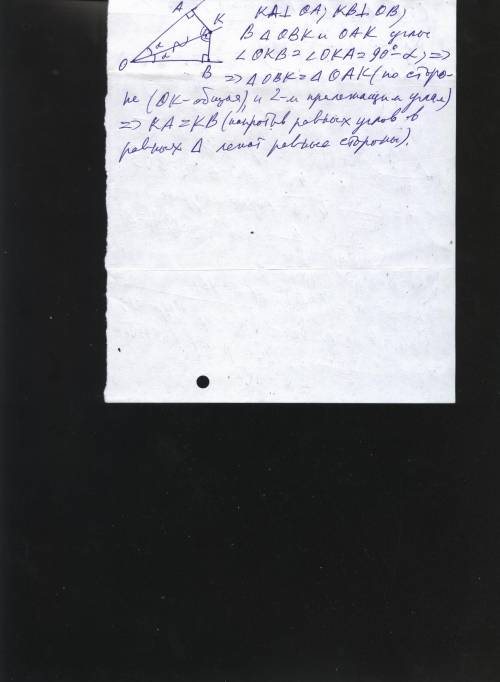 A K
α
α
O B
KA⊥OA, KB⊥OB,
В △ OBK и OAK углы
∠OKB = ∠OKA = 90° - α, =>
=> △OBK = △OAK (по сторо-
не (OK - общая) и 2-м прилежащим углам)
=> KA = KB (напротив равных углов в
равных △ лежат равные стороны).